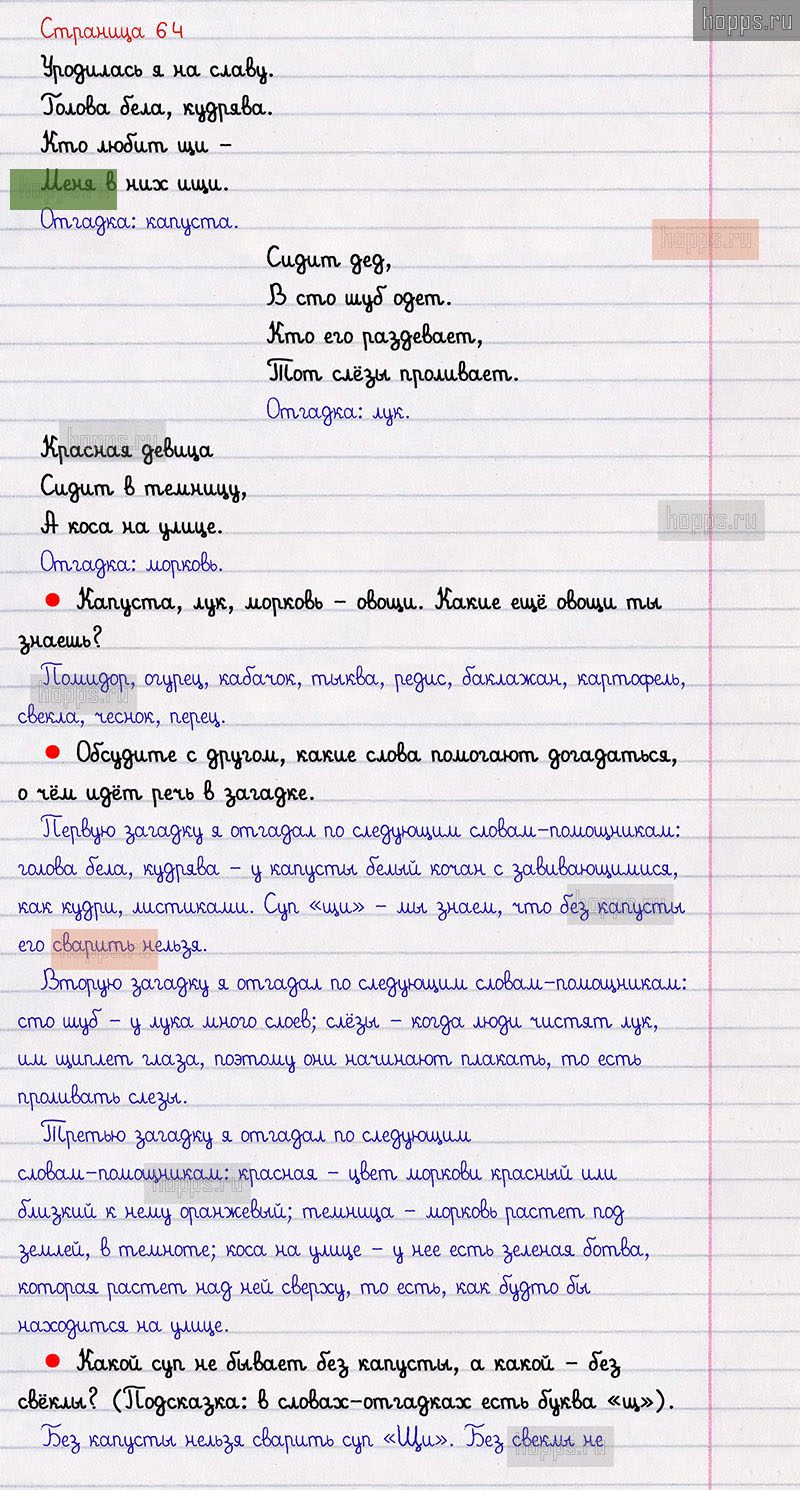 hopps.ru
Страница 64
Уродилась я на славу.
Голова бела, кудрява.
Кто любит щи –
Меня в них ищи.
Отгадка: капуста.
hopps.ru
Сидит дед,
В сто шуб одет.
Кто его раздевает,
Тот слёзы проливает.
Отгадка: лук.
hopps.ru
Красная девица
Сидит в темницу,
hopps.ru
А коса на улице.
Отгадка: морковь.
• Капуста, лук, морковь – овощи. Какие ещё овощи ты
знаешь?
Помидор, огурец, кабачок, тыква, редис, баклажан, картофель,
hopps.ru
свекла, чеснок, перец.
• Обсудите с другом, какие слова помогают догадаться,
о чём идёт речь в загадке.
Первую загадку я отгадал по следующим словам-помощникам:
голова бела, кудрява – у капусты белый кочан с завивающимися,
как кудри, листиками. Суп «щи» – мы знаем, что без капусты
его сварить нельзя.
Вторую загадку я отгадал по следующим словам-помощникам:
сто шуб – у лука много слоев; слёзы – когда люди чистят лук,
им щиплет глаза, поэтому они начинают плакать, то есть
проливать слезы.
Третью загадку я отгадал по следующим
словам-помощникам: красная – цвет моркови красный или
hopps.ru
близкий к нему оранжевый; темница – морковь растет под
землей, в темноте; коса на улице – у нее есть зеленая ботва,
которая растет над ней сверху, то есть, как будто бы
находится на улице.
• Какой суп не бывает без капусты, а какой – без
свёклы? (Подсказка: в словах-отгадках есть буква «щ»).
Без капусты нельзя сварить суп «Щи». Без свеклы не